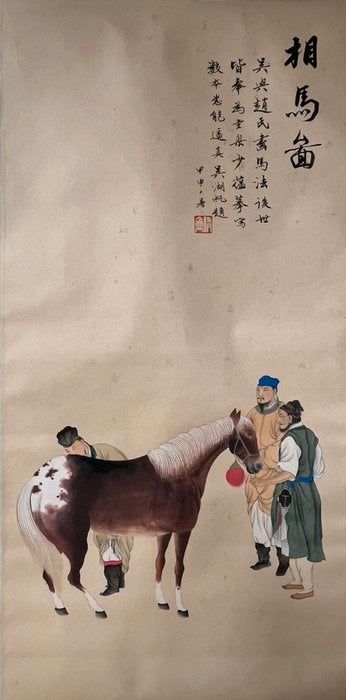 相馬啚
吳興趙氏畫馬法後世
皆奉為圭臬少蘊摹寫
數本悉能逼真吳湖帆題
甲申〻春